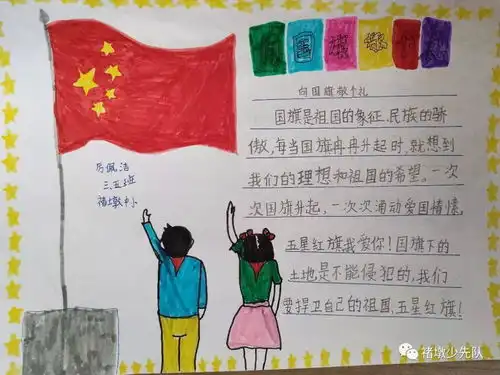 向国旗敬个礼
国旗是祖国的象征、民族的骄
傲,每当国旗冉冉升起时,就想到
我们的理想和祖国的希望。一次
次国旗升起,一次次涌动爱国情愫。
五星红旗我爱你!国旗下的
土地是不能侵犯的,我们
要捍卫自己的祖国,五星红旗!
厉佩洁
三.五班
褚墩中小
褚墩少先队